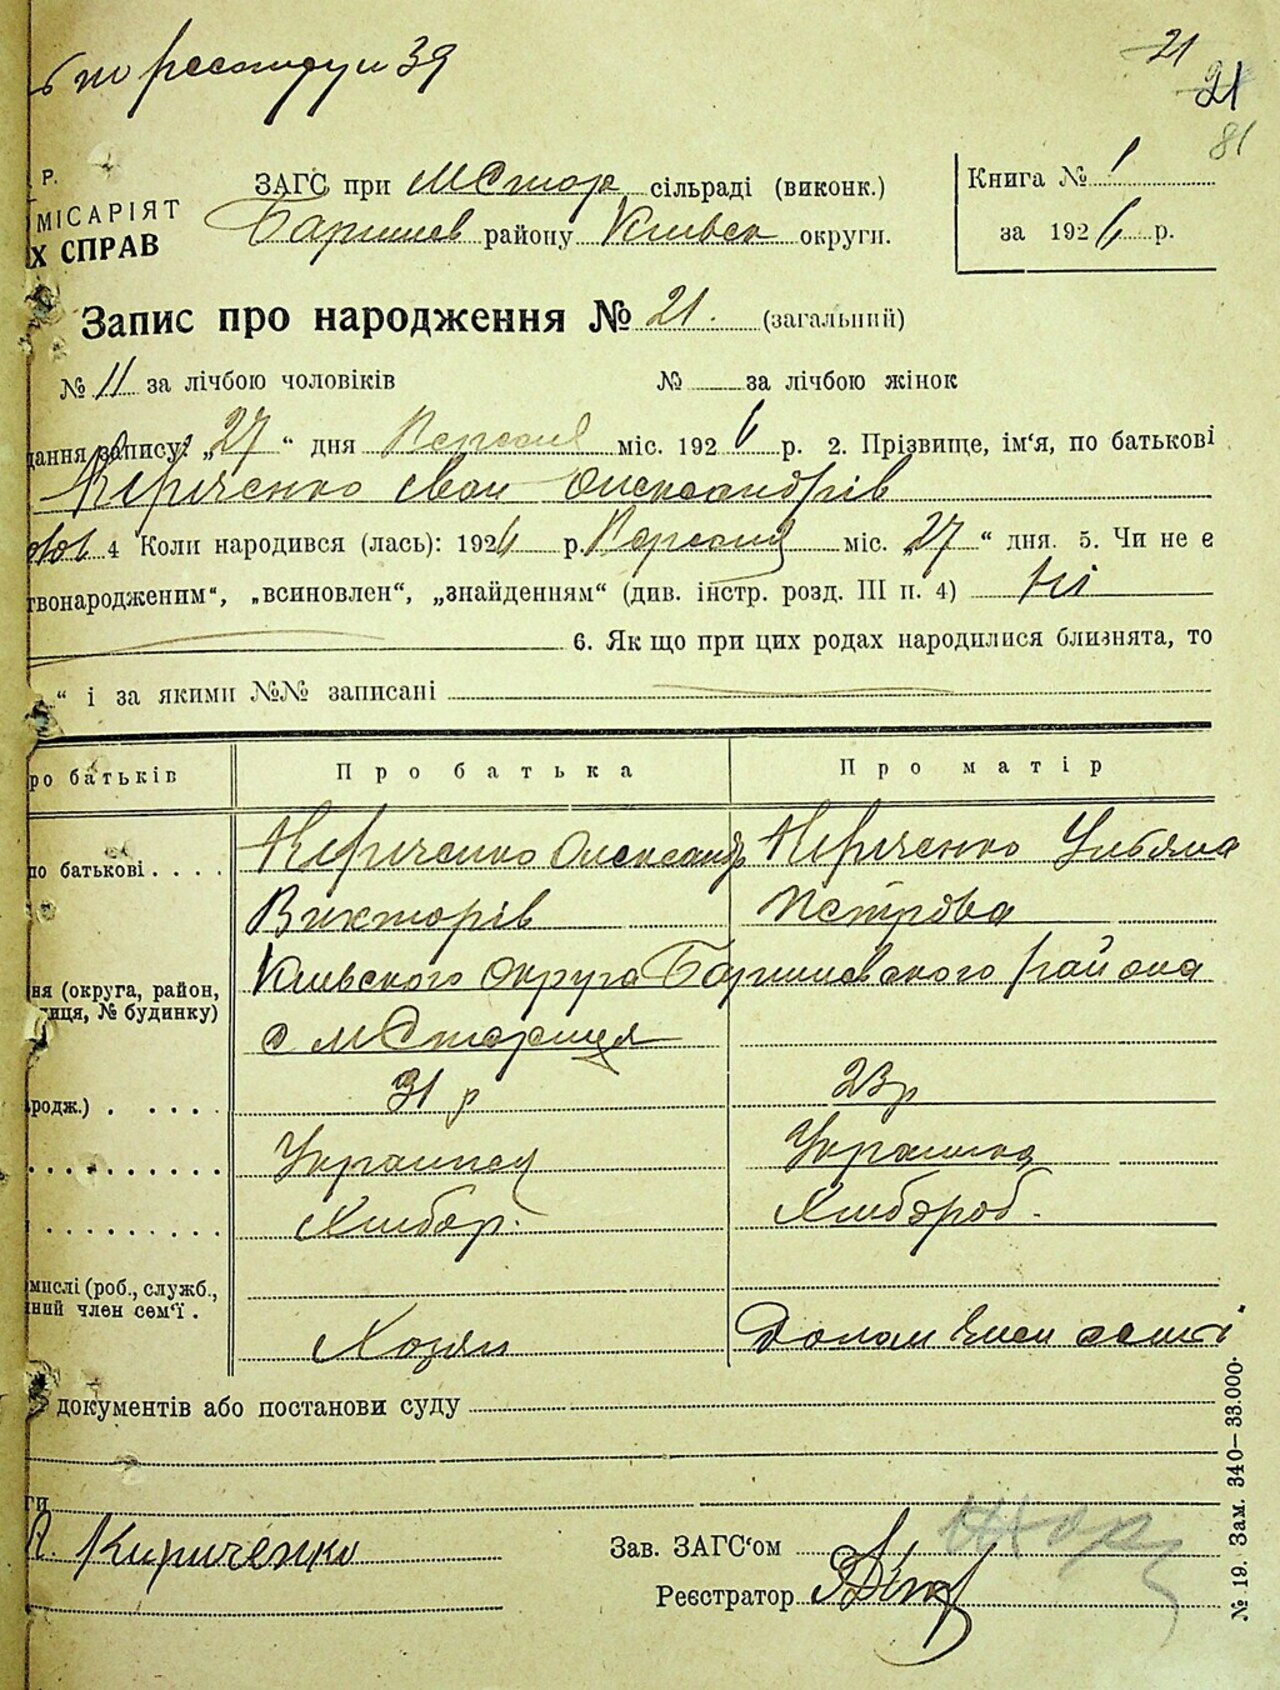 21
21
81
Р.
МІСАРІЯТ
Х СПРАВ
ЗАГС при МСтар сільраді (виконк.)
Баришев району Київськ округи.
Книга № 1
за 1926 р.
Запис про народження № 21. (загальний)
№ 11 за лічбою чоловіків № за лічбою жінок
дання запису: „27“ дня Версеня міс. 1926 р. 2. Прізвище, ім‘я, по батькові
Кериченко Іван Олександрів
4 Коли народився (лась): 1926 р. Версеня міс. „27“ дня. 5. Чи не є
твонародженим“, „всиновлен“, „знайденням“ (див. інстр. розд. III п. 4) Ні
6. Як що при цих родах народилися близнята, то
“ і за якими №№ записані
ро батьків Про батька Про матір
по батькові .... Кериченко Олександр Кериченко Ульяна
Викторів Петрова
ня (округа, район, Киівского Округа Баришевского района
лиця, № будинку)
с МСтариця
родж.) . .... 31 р 23 р
Украинец Украинка
Хлибор. Хлибороб.
мислі (роб., служб.,
ний член сем‘ї .
Хозяин
документів або постанови суду
ги
А. Кириченко
Зав. ЗАГС‘ом
Реєстратор
№ 19. Зам. 340—33.000.